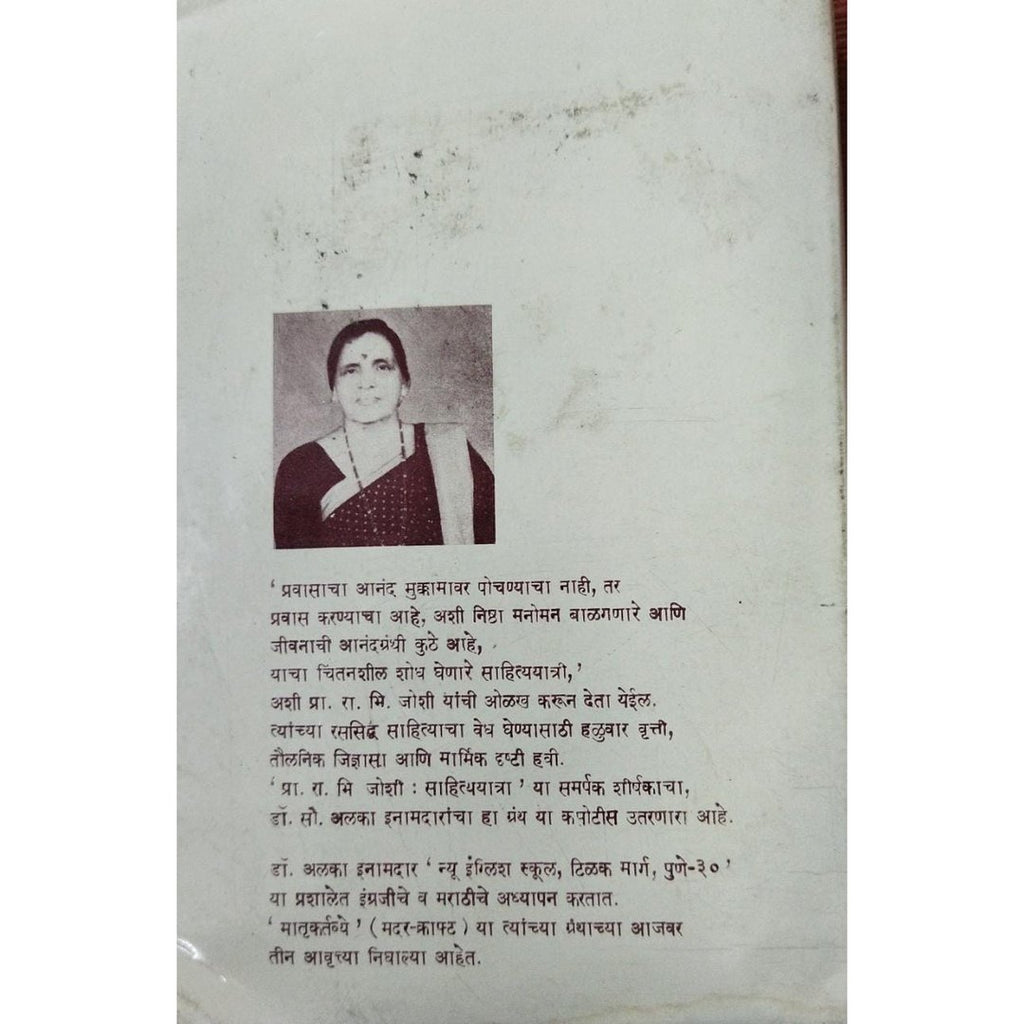 ‘ प्रवासाचा आनंद मुक्कामावर पोचण्याचा नाही, तर
प्रवास करण्याचा आहे, अशी निष्ठा मनोमन बाळगणारे आणि
जीवनाची आनंदग्रंथी कुठे आहे,
याचा चिंतनशील शोध घेणारे साहित्ययात्री,’
अशी प्रा. रा. भि. जोशी यांची ओळख करून देता येईल.
त्यांच्या रससिद्ध साहित्याचा वेध घेण्यासाठी हळुवार वृत्ती,
तौलनिक जिज्ञासा आणि मार्मिक दृष्टी हवी.
‘ प्रा. रा. भि जोशी : साहित्ययात्रा ’ या समर्पक शीर्षकाचा,
डॉ. सौ. अलका इनामदारांचा हा ग्रंथ या कसोटीस उतरणारा आहे.
डॉ. अलका इनामदार ‘ न्यू इंग्लिश स्कूल, टिळक मार्ग, पुणे-३० ’
या प्रशालेत इंग्रजीचे व मराठीचे अध्यापन करतात.
‘ मातृकर्तव्ये ’ ( मदर-क्राफ्ट ) या त्यांच्या ग्रंथाच्या आजवर
तीन आवृत्त्या निघाल्या आहेत.